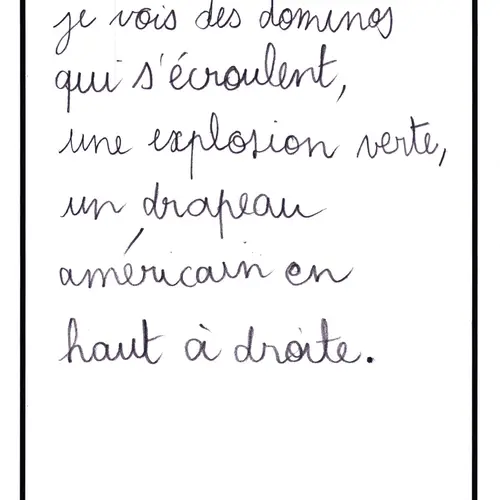 je vois des dominos
qui s'écroulent,
une explosion verte,
un drapeau
américain en
haut à droite.